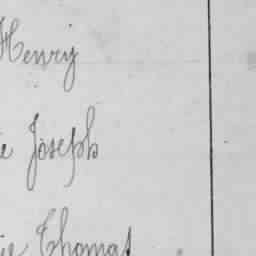 Henry
e Joseph
ie Thomas